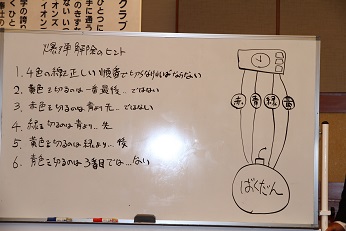 クラブ
爆弾解除のヒント
1. 4色の線を正しい順番で切らなければならない
2. 黄色を切るのは一番最後…ではない
3. 赤色を切るのは青より先…ではない
4. 緑を切るのは青より…先
5. 黄色を切るのは緑より…後
6. 青色を切るのは3番目では…ない
赤 青 緑 黄
ばくだん